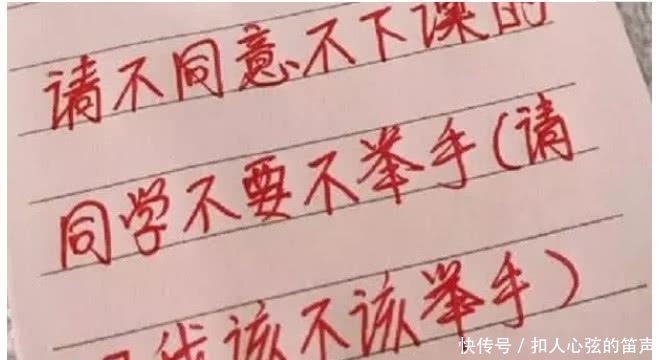 请不同意不下课的
同学不要不举手(请
我该不该举手)
快传号/扣人心弦的笛声